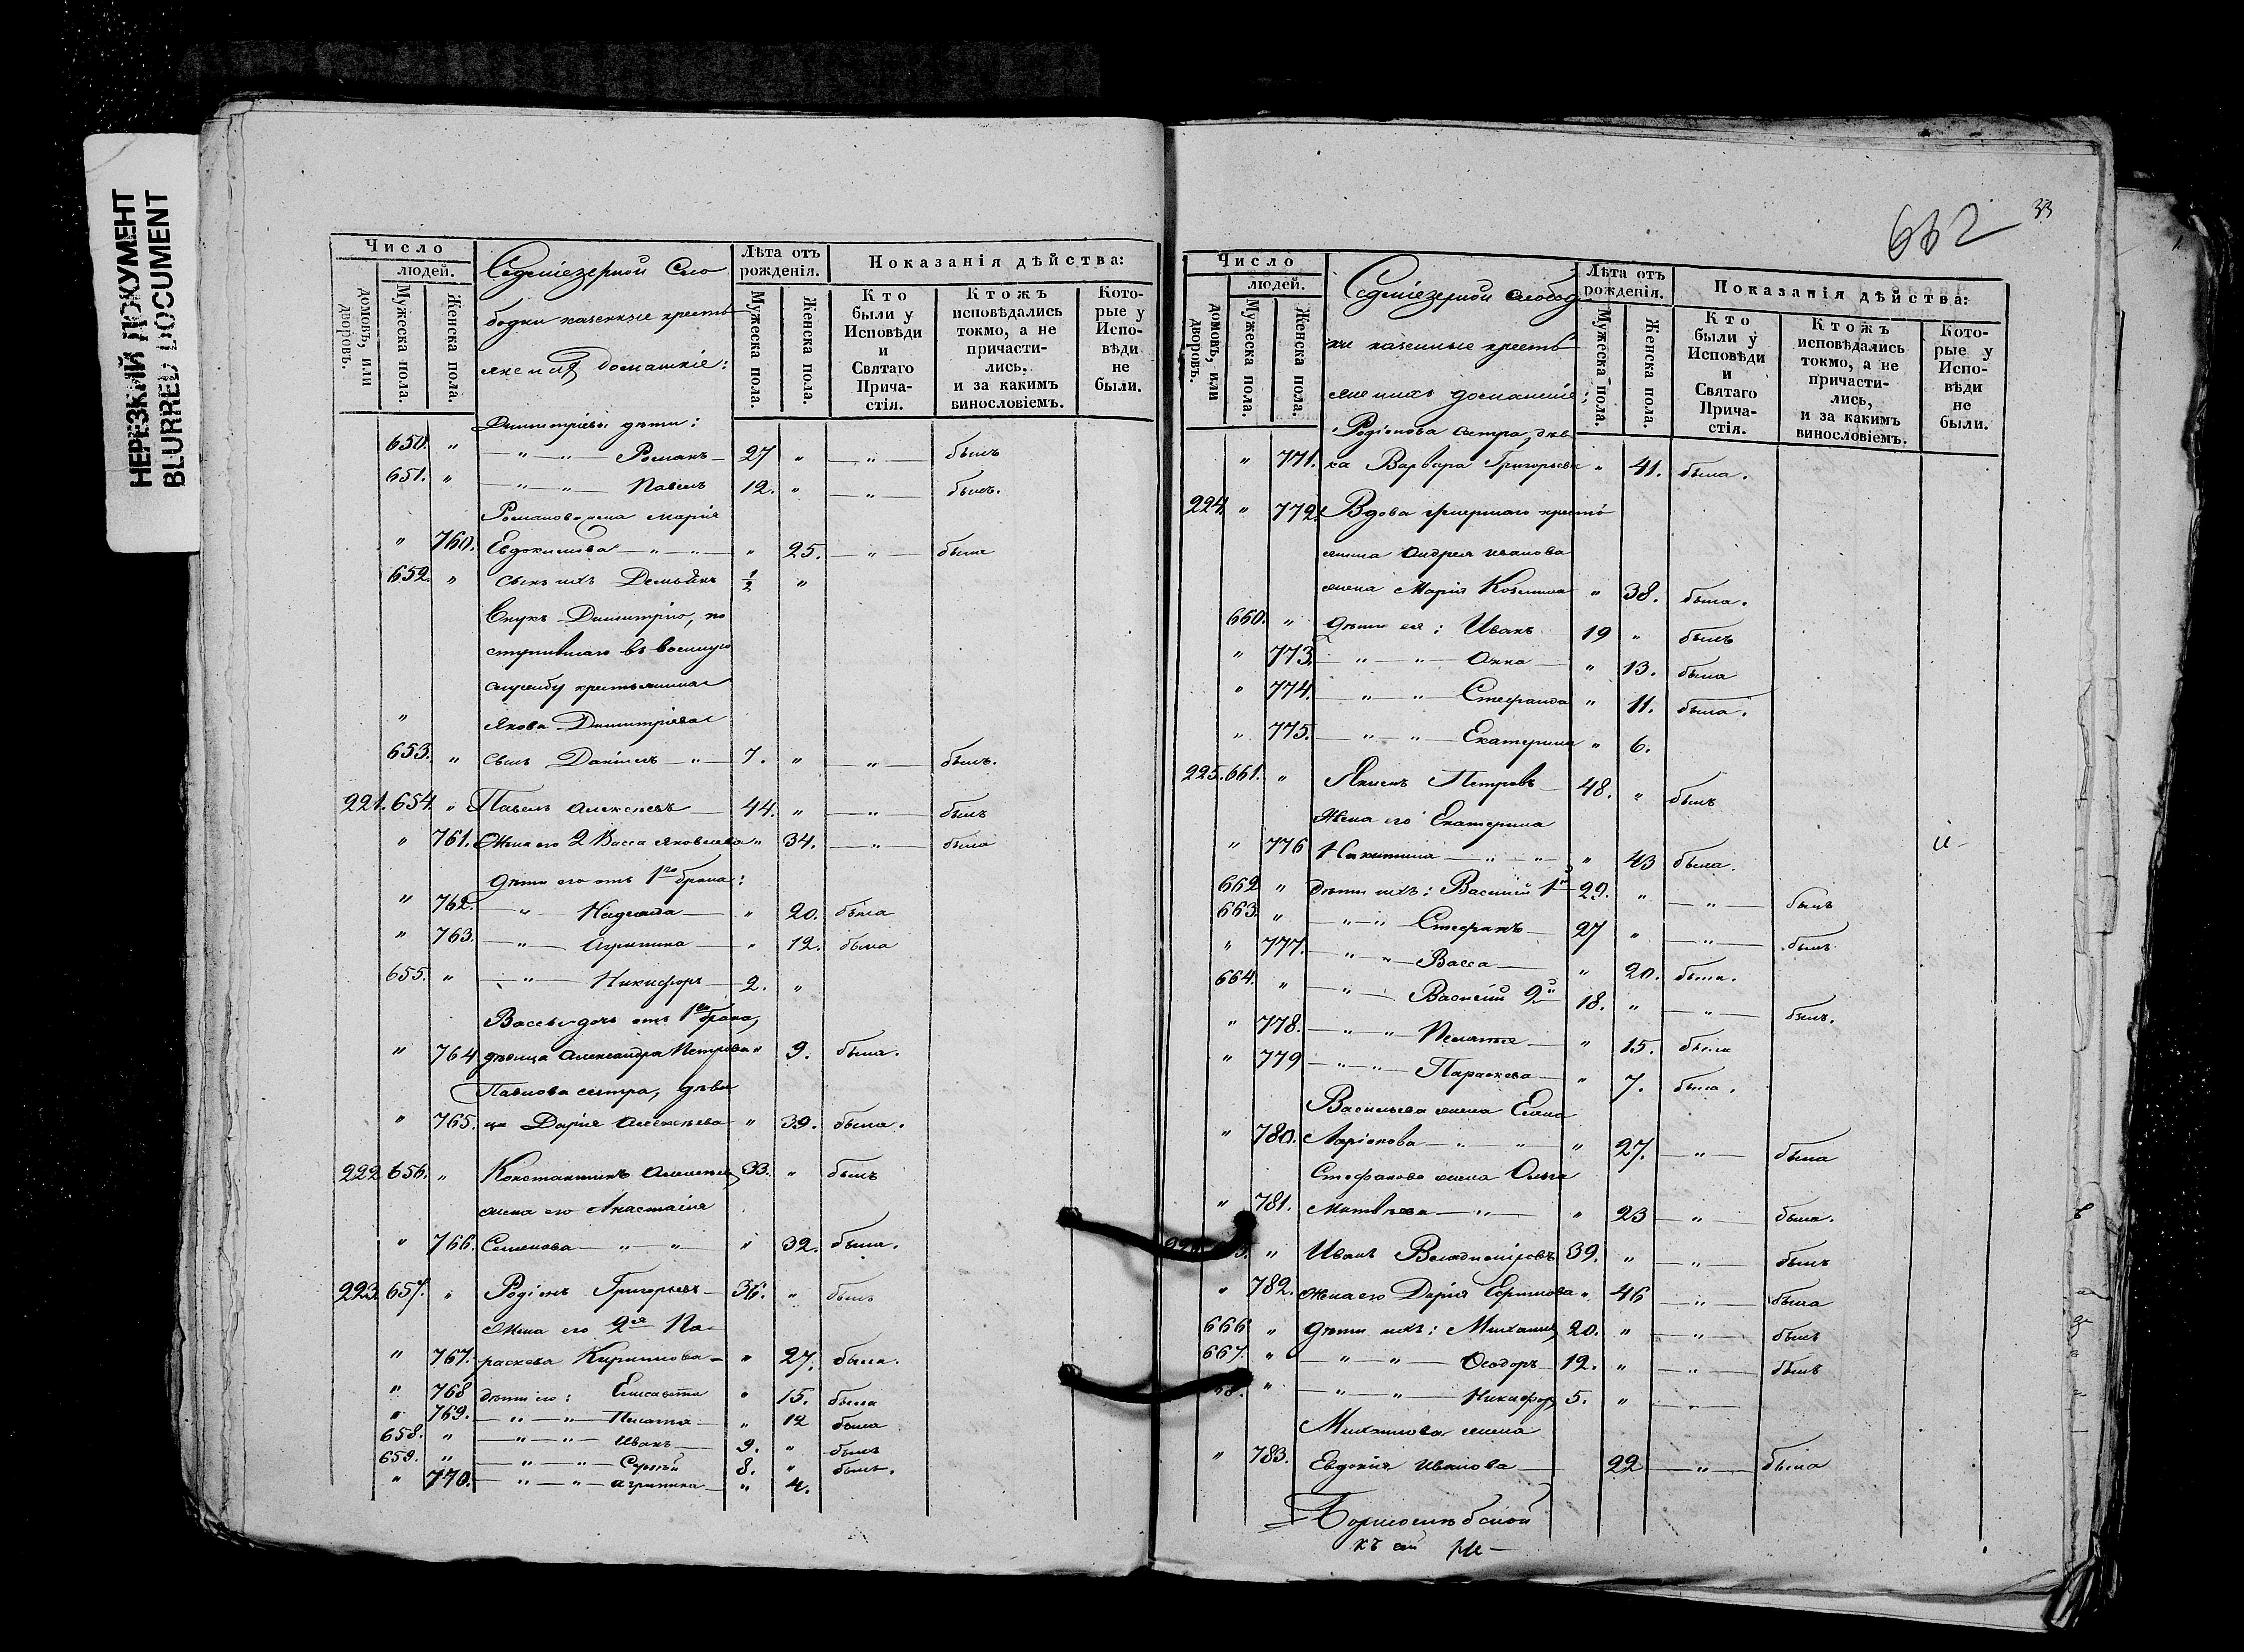 НЕРЕЗКИЙ ДОКУМЕНТ
BLURRED DOCUMENT
Число
людей.
домовъ, или дворовъ.
Мужеска пола.
Женска пола.
Седміезерной Сло
бодки казенные кресть
яне и ихъ домашніе:
Лѣта отъ рожденія.
Мужеска пола.
Женска пола.
Показанія дѣйства:
Кто были у Исповѣди и Святаго Причастія.
Ктожъ исповѣдались токмо, а не причастились, и за какимъ винословіемъ.
Которые у Исповѣди не были.
Димитріевы дѣти:
650. " — " — " — Романъ — 27 " — " — былъ
651. " — " — " — Павелъ 12. " — " — былъ.
Романова жена Марія
" 760. Евдокимова — " — " — " 25. — " — была
652. " Сынъ ихъ Демьянъ 1/2 "
Внукъ Димитрію, по
ступившаго въ военную
службу крестьянина
" Якова Димитріева
653. " сынъ Даніилъ — " — 7. " — " — былъ.
221. 654. " Павелъ Алексѣевъ — 44. " — " — былъ
" 761. Жена его 2 Васса Яковлева " 34. — " — была
Дѣти его отъ 1го брака:
" 762. — " — Надежда — " 20. была
" 763. — " — Агрипина — " 12. была
655. " — " — Никифоръ — 2. "
Вассы дочь отъ 1го брака,
" 764 дѣвица Александра Петрова " 9. была.
Павлова сестра, дѣви
" 765. ца Дарія Алексѣева " 39. была.
222 656. " Константинъ Алексѣевъ 33. " былъ
жена его Анастасія
" 766. Семенова — " — " — " 32. была.
223. 657. " Родіонъ Григорьевъ — 36. " былъ
Жена его 2я Па-
" 767. раскева Кирилова — " 27. была.
" 768 дѣти его: Елисавета " 15. была
" 769. — " — " — Пелагея " 12 была
658. " — " — " — Иванъ 9. " былъ
659. " — " — " — Сергѣй 8. " былъ.
" 770. — " — " — Агрипина " 4.
662
33
Число
людей.
домовъ, или дворовъ.
Мужеска пола.
Женска пола.
Седміезерной слобод
ки казенные кресть
яне и ихъ домашніе:
Лѣта отъ рожденія.
Мужеска пола.
Женска пола.
Показанія дѣйства:
Кто были у Исповѣди и Святаго Причастія.
Ктожъ исповѣдались токмо, а не причастились, и за какимъ винословіемъ.
Которые у Исповѣди не были.
Родіонова сестра, дѣв
" 771. ка Варвара Григорьева " 41. была.
224. " 772. Вдова умершаго кресть
янина Андрея Иванова
жена Марія Козмина " 38. была.
660. " Дѣти ея: Иванъ 19 " былъ
" 773. — " — " — Анна — " 13. была
" 774. — " — " — Стефанида " 11. была.
" 775. — " — " — Екатерина " 6.
225. 661. " Якимъ Петровъ 48. " былъ
Жена его Екатерина
" 776 Никитина — " — " — " 43 была.
662 " дѣти ихъ: Василій 1й 29. " — " — былъ
663. " — " — " — Стефанъ — 27 " — " — былъ
" 777. — " — " — Васса — " 20. была.
664. " — " — Василій 2й 18. " — " — былъ.
" 778. — " — " — Пелагея — " 15. была
" 779 — " — " — Параскева — " 7. была.
Васильева жена Елена
" 780. Ларіонова — " — " — " 27. — " — была
Стефанова жена Ольга
" 781. Матвѣева — " — " 23 — " — была.
" Иванъ Владиміровъ 39. " — " — былъ
" 782. Жена его Дарія Ефимова " 46 — " — была
666 " Дѣти ихъ: Михаилъ 20. " — " — былъ
667. " — " — " — Ѳеодоръ — 12. " — " — былъ
" — " — " — Никифоръ 5. " — " —
Михаилова жена
" 783. Евдокія Иванова — 22 — " — была